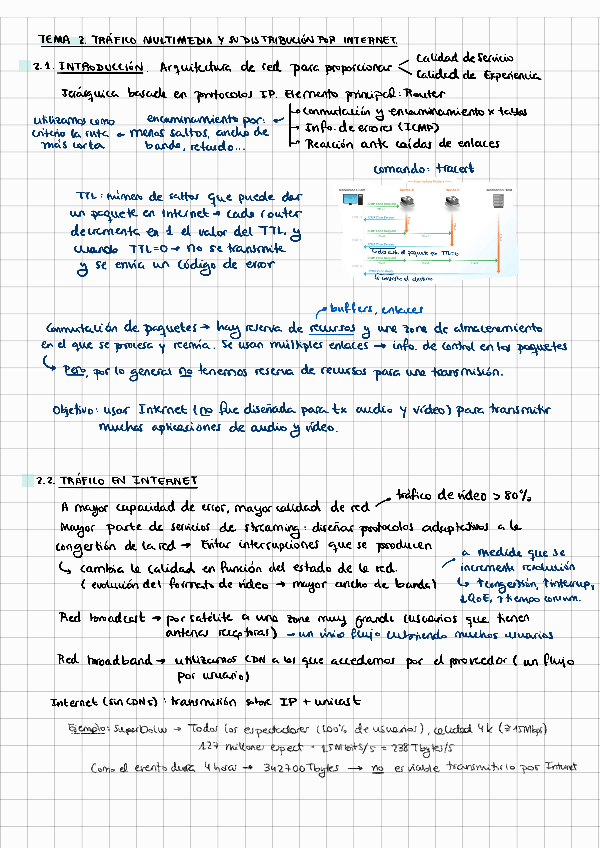 TEMA 2. TRÁFICO MULTIMEDIA Y SU DISTRIBUCIÓN POR INTERNET.
2.1. INTRODUCCIÓN. Arquitectura de red para proporcionar
Calidad de Servicio
Calidad de Experiencia
Jerárquica basada en protocolos IP. Elemento principal: Router
Conmutación y encaminamiento x tablas
Info. de errores (ICMP)
Reacción ante caídas de enlaces
encaminamiento por:
menos saltos, ancho de
banda, retardo...
utilizamos como
criterio la ruta
más corta
comando: tracert
TTL: número de saltos que puede dar
un paquete en Internet → cada router
decrementa en 1 el valor del TTL, y
cuando TTL=0 → no se transmite
y se envía un código de error
buffers, enlaces
Conmutación de paquetes → hay reserva de recursos y una zona de almacenamiento
en el que se procesa y reenvía. Se usan múltiples enlaces → info. de control en los paquetes
Pero, por lo general no tenemos reserva de recursos para una transmisión.
Objetivo: usar Internet (no fue diseñada para tx audio y vídeo) para transmitir
muchas aplicaciones de audio y vídeo.
2.2. TRÁFICO EN INTERNET
A mayor capacidad de error, mayor calidad de red
tráfico de vídeo > 80%
Mayor parte de servicios de streaming: diseñar protocolos adaptativos a la
congestión de la red → Evitar interrupciones que se producen
cambia la calidad en función del estado de la red.
(evolución del formato de vídeo → mayor ancho de banda)
a medida que se
incrementa resolución
↑congestión, ↑interrup,
↓QoE, ↑tiempo conmu.
Red broadcast → por satélite a una zona muy grande (usuarios que tienen
antenas receptoras) → un único flujo cubriendo muchos usuarios
Red broadband → utilizamos CDN a los que accedemos por el proveedor (un flujo
por usuario)
Internet (sin CDNs): transmisión sobre IP + unicast
Ejemplo: SuperBowl → Todos los espectadores (100% de usuarios), calidad 4k (≥15Mbps)
127 millones espect · 15Mbits/s = 238 Tbytes/s
Como el evento dura 4 horas → 342700 Tbytes → no es viable transmitirlo por Internet